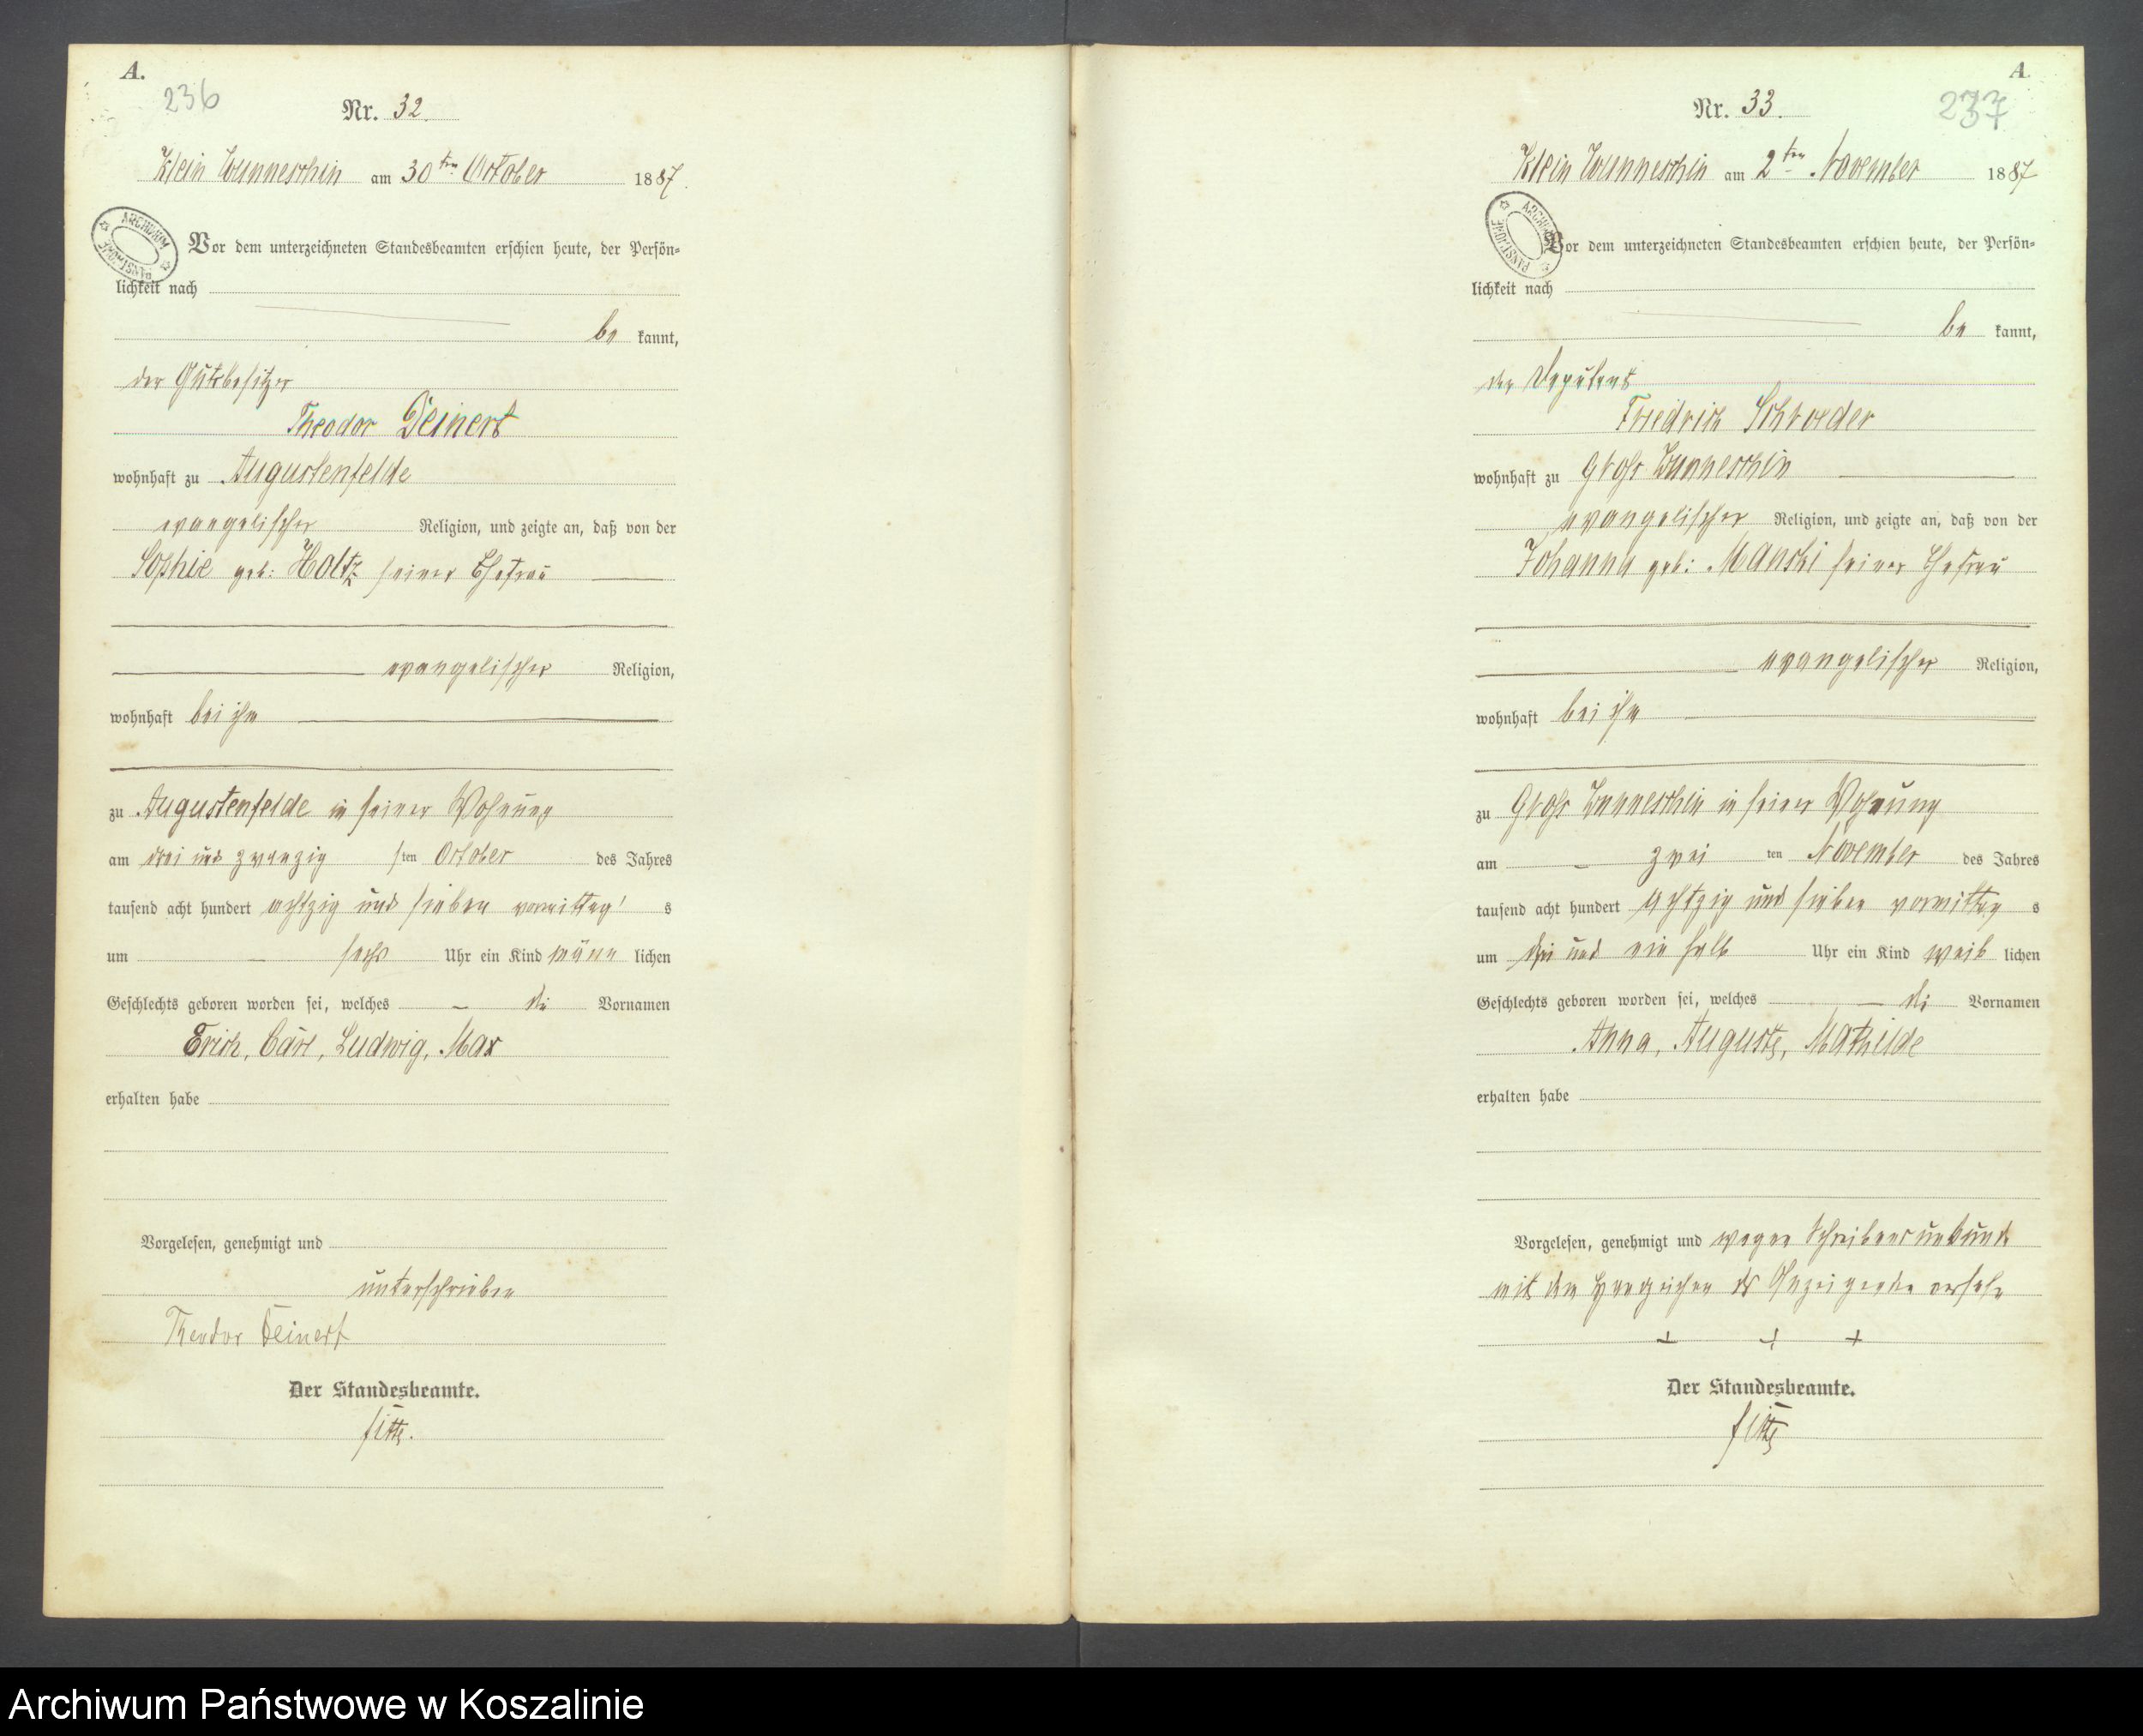 A.
236
Nr. 32.
Klein Wunneschin am 30ten October 1887.
ARCHIWUM PAŃSTWOWE
Vor dem unterzeichneten Standesbeamten erschien heute, der Persön=
lichkeit nach
be kannt,
der Gutsbesitzer
Theodor Deinert
wohnhaft zu Augustenfelde
evangelischer Religion, und zeigte an, daß von der
Sophie geb: Holtz seiner Ehefrau
evangelischer Religion,
wohnhaft bei ihm
zu Augustenfelde in seiner Wohnung
am drei und zwanzig sten October des Jahres
tausend acht hundert achtzig und sieben vormittag s
um sechs Uhr ein Kind männ lichen
Geschlechts geboren worden sei, welches die Vornamen
Erich, Carl, Ludwig, Max
erhalten habe
Vorgelesen, genehmigt und
unterschrieben
Theodor Deinert
Der Standesbeamte.
A
237
Nr. 33.
Klein Wunneschin am 2ten November 1887
ARCHIWUM PAŃSTWOWE
Vor dem unterzeichneten Standesbeamten erschien heute, der Persön=
lichkeit nach
be kannt,
der Deputant
Friedrich Schroeder
wohnhaft zu Groß Wunneschin
evangelischer Religion, und zeigte an, daß von der
Johanna geb: Manski seiner Ehefrau
evangelischer Religion,
wohnhaft bei ihm
zu Groß Wunneschin in seiner Wohnung
am zwei ten November des Jahres
tausend acht hundert achtzig und sieben vormittag s
um drei und ein halb Uhr ein Kind weib lichen
Geschlechts geboren worden sei, welches die Vornamen
Anna, Auguste, Mathilde
erhalten habe
Vorgelesen, genehmigt und wegen Schreibensunkunde
mit den Handzeichen des Anzeigenden versehn
+ + +
Der Standesbeamte.
Archiwum Państwowe w Koszalinie